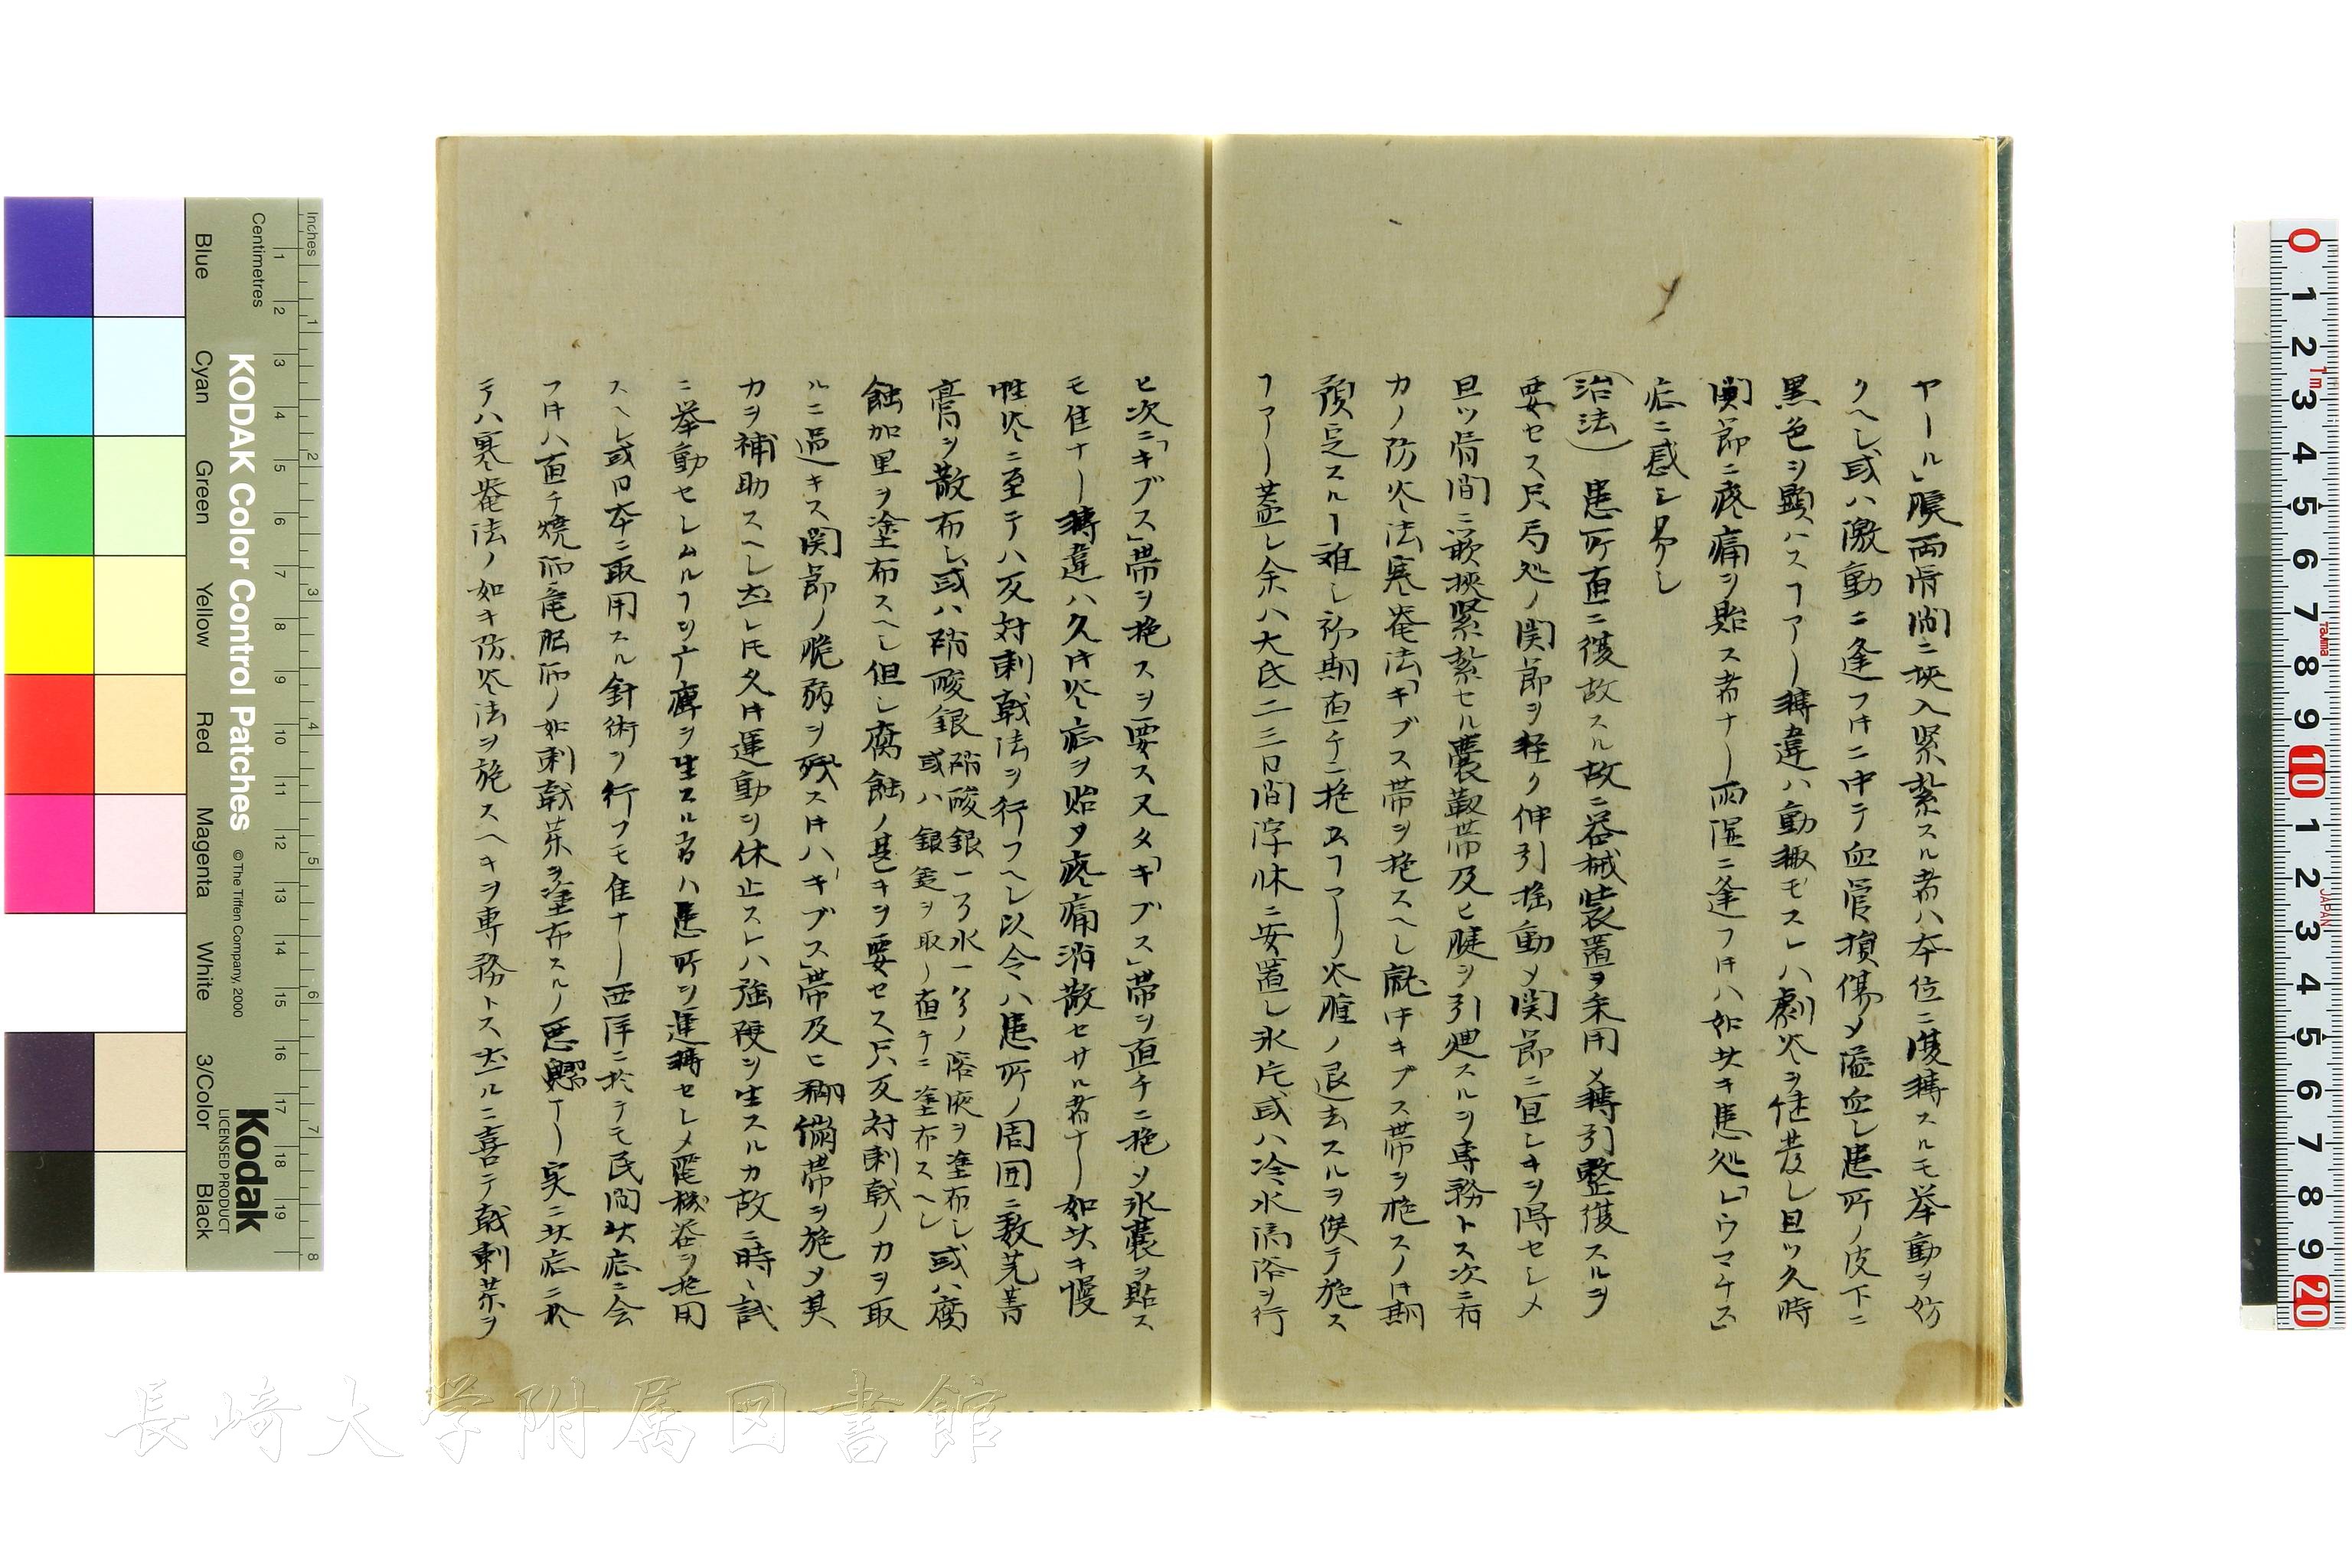 ヤール」膜両骨間ニ挾入緊紮スル者ハ本位ニ復轉スルモ挙動ヲ妨
クヘシ或ハ激動ニ逢フ時ニ中テ血管損傷メ溢血シ患所ノ皮下ニ
黒色ヲ顕ハスヿアリ轉違ハ動揺モスレハ劇炎ヲ継発シ且ツ久時
関節ニ疼痛ヲ貽ス者ナリ雨湿ニ逢フ時ハ如此キ患処「レウマチス」
症ニ感シ易シ
(治法) 患所直ニ復故スル故ニ器械装置ヲ采用メ轉引整復スルヲ
要セス只局処ノ関節ヲ軽ク伸引揺動メ関節ニ宜シキヲ得セシメ
且ツ骨間ニ嵌挾緊紮セル嚢靱帯及ヒ腱ヲ引廻スルヲ専務トス次ニ有
力ノ防炎法寒罨法「ギブス帯ヲ施スヘシ就中キブス帯ヲ施スノ時期
預定スルヿ難シ初期直チニ施スヿアリ炎腫ノ退去スルヲ俟テ施ス
ヿアリ蓋シ余ハ大氐二三日間浮休ニ安置シ氷片或ハ冷水滴浴ヲ行
ヒ次ニ「ギブス」帯ヲ施スヲ要ス又タ「ギブス」帯ヲ直チニ施メ氷嚢ヲ貼ス
モ佳ナリ轉違ハ久時炎症ヲ貽メ疼痛消散セサル者ナリ如此キ慢
性炎ニ至テハ反対刺戟法ヲ行フヘシ以令ハ患所ノ周囲ニ数芫菁
膏ヲ散布シ或ハ硝酸銀 硝酸銀一ヲ水一ヲノ溶液ヲ塗布シ或ハ腐
或ハ銀錠ヲ取リ直チニ塗布スヘシ
蝕加里ヲ塗布スヘシ但シ腐蝕ノ甚キヲ要セス只反対刺戟ノ力ヲ取
ルニ過キス関節ノ脆弱ヲ残ス時ハ「ギブス」帯及ヒ糊繃帯ヲ施メ其
力ヲ補助スヘシ然レ𪜈久時運動ヲ休止スレハ強硬ヲ生スルカ故ニ時々試
ニ挙動セシムルヿヲ 痺ヲ生スル者ハ患所ヲ運轉セシメ電機器ヲ施用
スヘシ或日本ニ取用スル針術ヲ行フモ佳ナリ西洋ニ於テモ民間此症ニ会
フ時ハ直チ焼 竜脳 ノ如刺戟薬ヲ塗布スルノ悪 アリ実ニ此症ニ於
テハ寒罨法ノ如キ防炎法ヲ施スヘキヲ専務トス然ルニ喜テ戟刺薬ヲ
長崎大学附属図書館
KODAK Color Control Patches
© The Tiffen Company, 2000
Kodak
LICENSED PRODUCT
Inches
Centimetres
Blue
Cyan
Green
Yellow
Red
Magenta
White
3/Color
Black
1 2 3 4 5 6 7 8 9 10 11 12 13 14 15 16 17 18 19
1 2 3 4 5 6 7 8
0 1 2 3 4 5 6 7 8 9 10 1 2 3 4 5 6 7 8 9 20
1m
Tajima
JAPAN